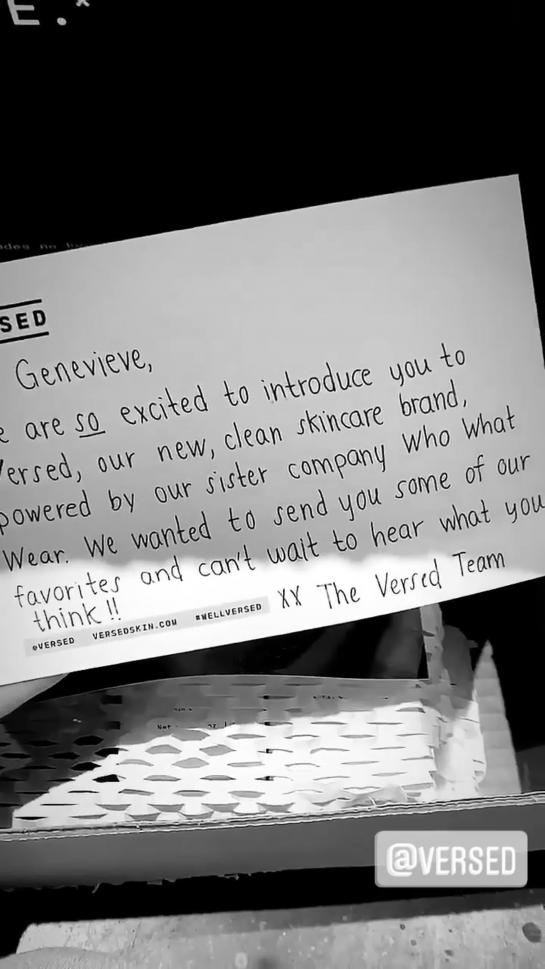 E.*
SED
Genevieve,
e are so excited to introduce you to
ersed, our new, clean skincare brand,
powered by our sister company Who What
Wear. We wanted to send you some of our
favorites and can't wait to hear what you
think!!
XX The Versed Team
@VERSED VERSEDSKIN.COM #WELLVERSED
@VERSED